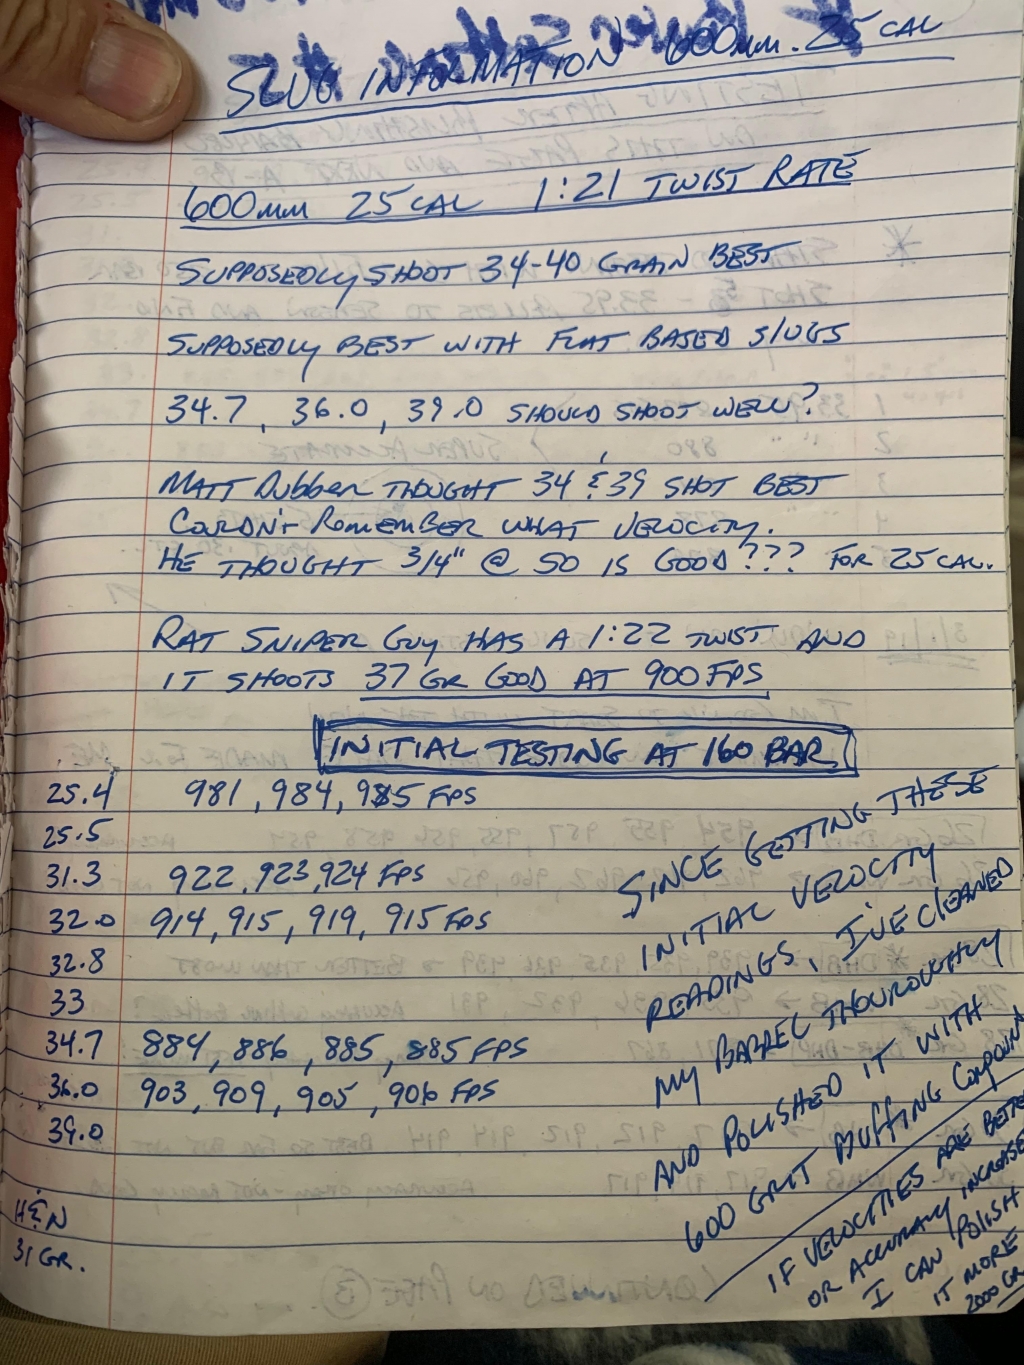 SLUG INFORMATION 600mm .25 CAL
600mm 25 CAL 1:21 TWIST RATE
SUPPOSEDLY SHOOT 34-40 GRAIN BEST
SUPPOSEDLY BEST WITH FLAT BASED SLUGS
34.7, 36.0, 39.0 SHOULD SHOOT WELL?
MATT DUBBER THOUGHT 34 & 39 SHOT BEST
COULDN'T REMEMBER WHAT VELOCITY.
HE THOUGHT 3/4" @ 50 IS GOOD??? FOR 25 CAL.
RAT SNIPER GUY HAS A 1:22 TWIST AND
IT SHOOTS 37 GR GOOD AT 900 FPS
INITIAL TESTING AT 160 BAR
25.4 981, 984, 985 FPS
25.5
31.3 922, 923, 924 FPS
32.0 914, 915, 919, 915 FPS
32.8
33
34.7 884, 886, 885, 885 FPS
36.0 903, 909, 905, 906 FPS
39.0
H&N
31 GR.
SINCE GETTING THESE
INITIAL VELOCITY
READINGS, I'VE CLEANED
MY BARREL THOUROUGHLY
AND POLISHED IT WITH
600 GRIT BUFFING COMPOUND
IF VELOCITIES ARE BETTER
OR ACCURACY INCREASES
I CAN POLISH
IT MORE
2000 GR